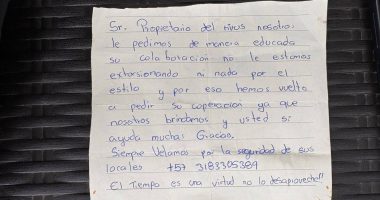 Sr. Propietario del rivus nosotros
le pedimos de manera educada
su colaboración no le estamos
extorsionando ni nada por el
estilo y por eso hemos vuelto
a pedir su coperación ya que
nosotros brindamos y usted si
ayuda muchas Gracias.
Siempre Velamos por la seguridad de sus
locales +57 3183305389
El tiempo es una virtud no lo desaproveche!!